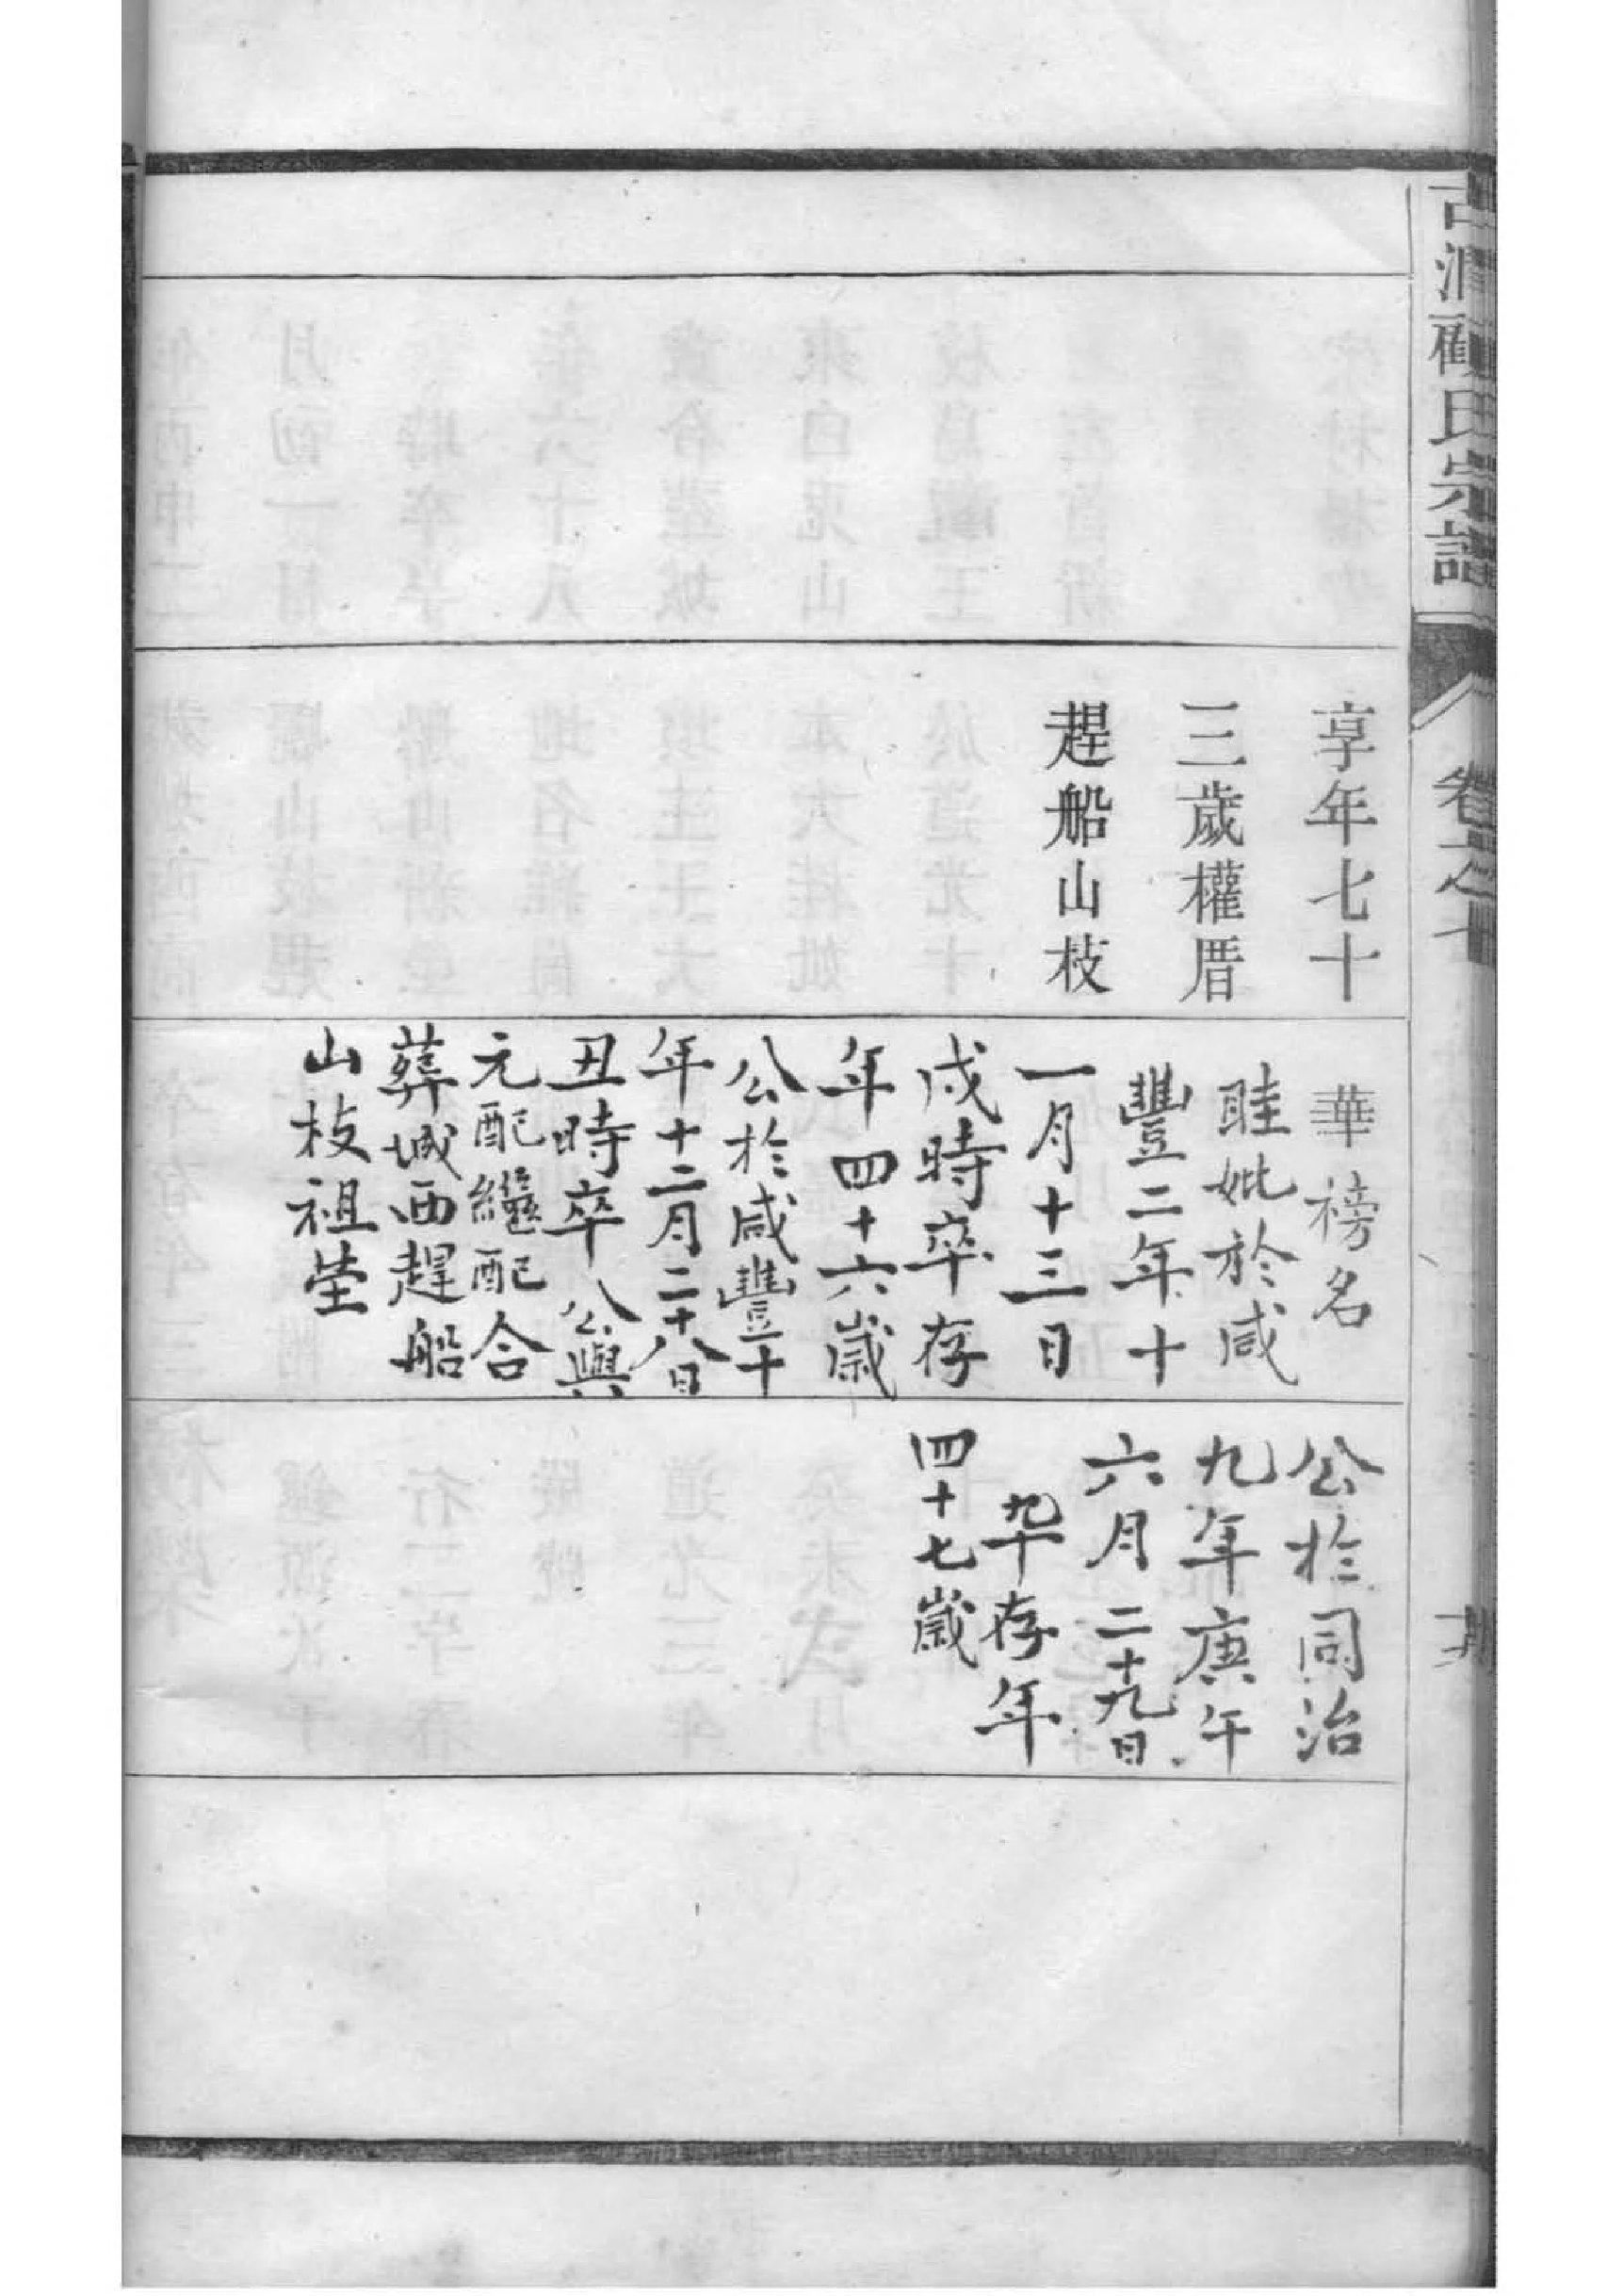 享年七十
三歲權厝
趕船山枝
華榜名
眭妣於咸
豐二年十
一月十三日
戌時卒存
年四十六歲
公於咸豐十
年十二月二十八日
丑時卒公與
元配繼配合
葬城西趕船
山枝祖塋
公於同治
九年庚午
六月二十九日
卒存年
四十七歲
氏宗譜